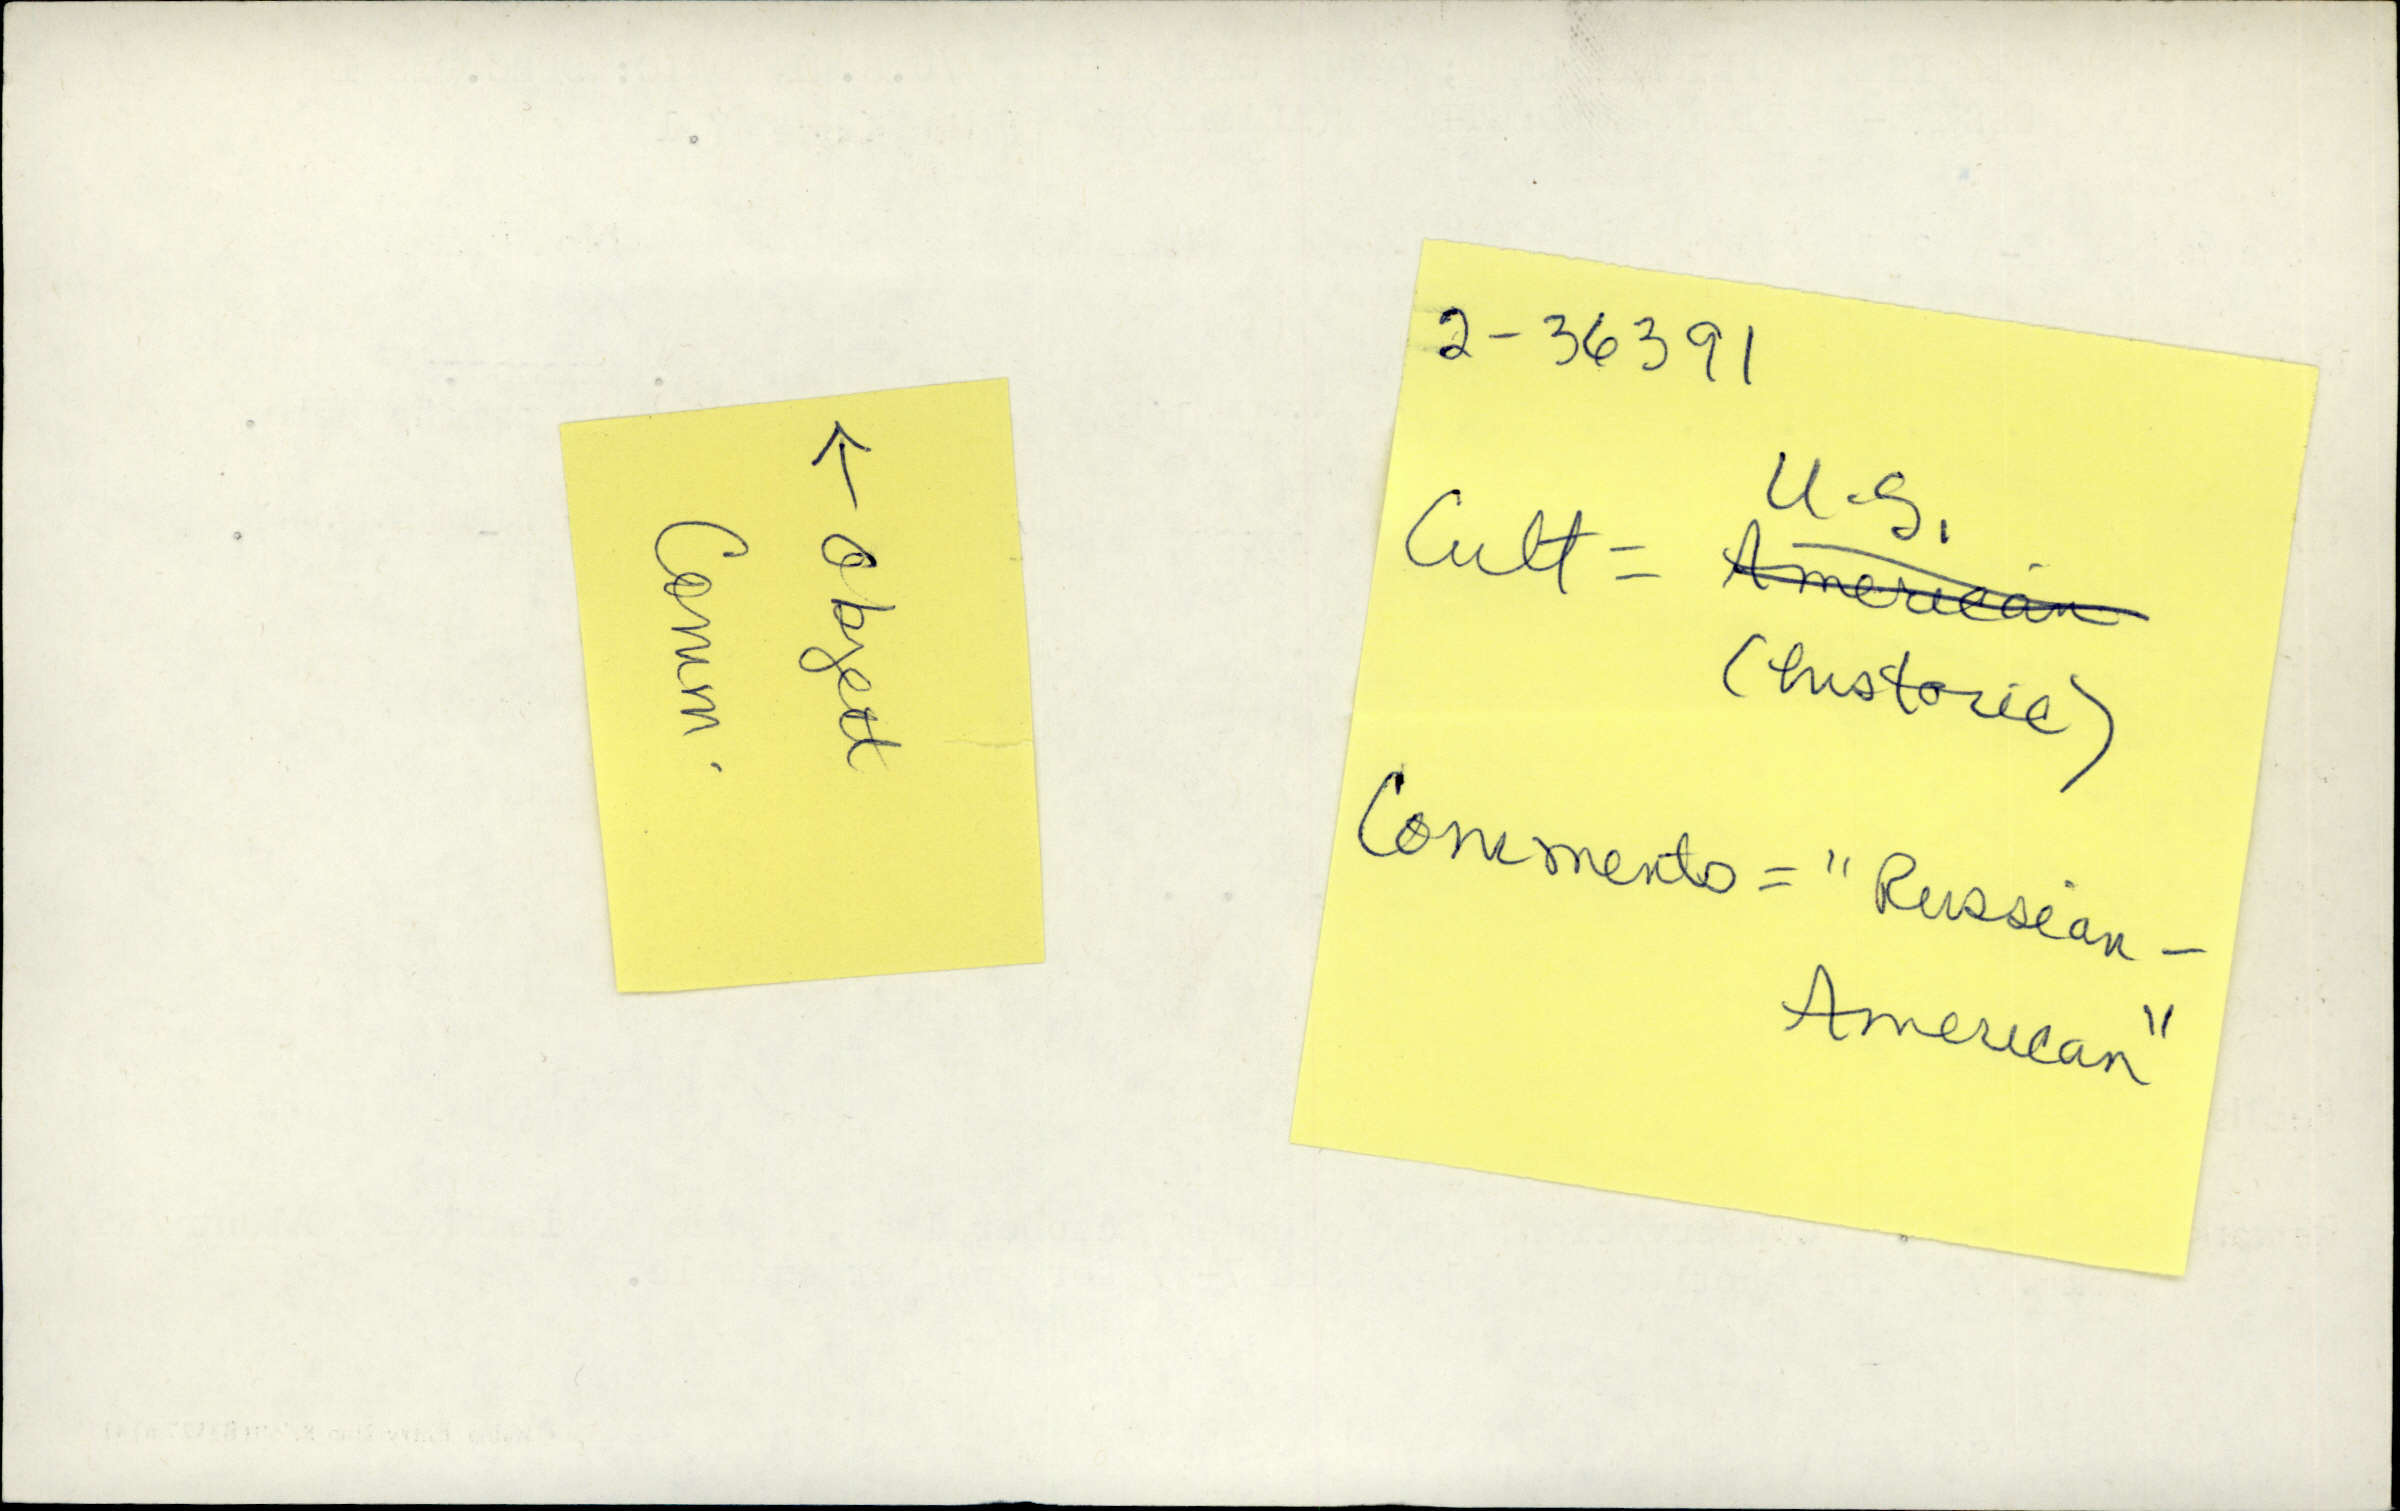 ← Object
Comm.
2-36391
U.S.
Cult = American
(historic)
Comments = "Russian-
American"